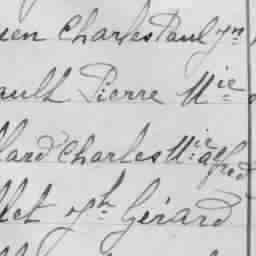 uen Charles Paul Jn
ault Pierre Mie
lard Charles Mie alfred
llet Jh Gérard